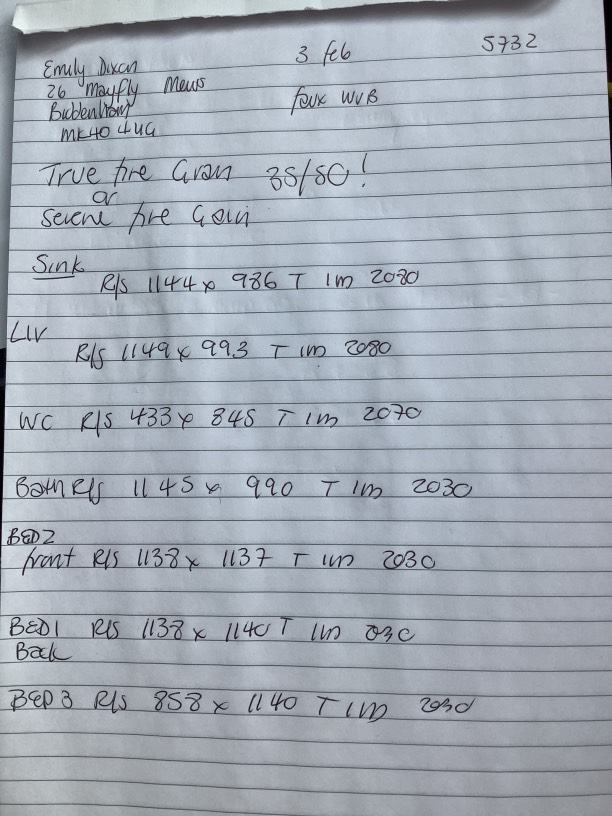 Emily Dixon 3 feb 5732
26 Mayfly Mews
Faux WVB
Biddenham
MK40 4UG
True fire Gran 35/50!
or
Severe fire Gain
Sink
R/S 1144 x 986 T 1m 2080
LIV
R/S 1149 x 993 T 1m 2080
WC R/S 433 x 845 T 1m 2070
Bath R/S 1145 x 990 T 1m 2030
BED2
front R/S 1138 x 1137 T 1m 2030
BED1 R/S 1138 x 1140 T 1m 030
Back
BED 3 R/S 858 x 1140 T 1m 2030